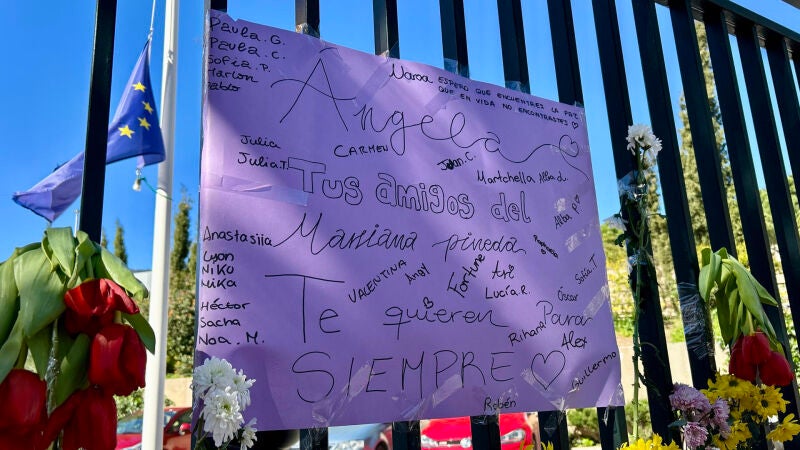 Paula G.
Paula C.
Sofía P.
Marlon
Pablo
Naroa ESPERO QUE ENCUENTRES LA PAZ
QUE EN VIDA NO ENCONTRASTES ♡
Ángela ♡
Julia
Julia T.
CARMEN
Joan C.
Martchella
Alba d.
Tus amigos del
Alba P.
Mariana pineda
Anastasiia
Lyon
NIKO
Mika
Héctor
Sacha
Noa. M.
VALENTINA
Andy
Fortune
Ari
Lucía R.
Óscar
Sofía T.
Te quieren Para
Rihana
Alex
SIEMPRE ♡
Guillermo
Robén